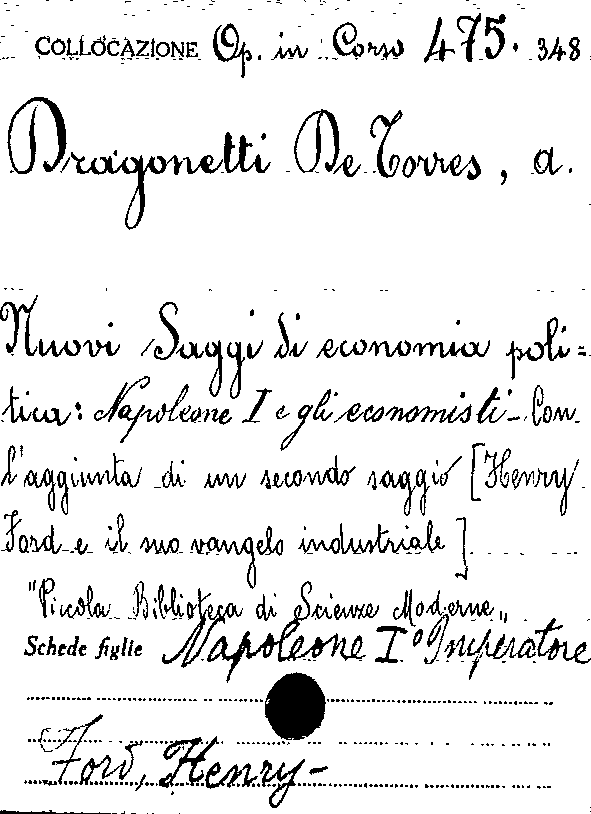 COLLOCAZIONE Op. in Corso 475. 348
Dragonetti De Torres, a.
Nuovi Saggi di economia poli=
tica: Napoleone I e gli economisti - Con
l'aggiunta di un secondo saggio [Henry
Ford e il suo vangelo industriale]
"Piccola Biblioteca di Scienze Moderne„
Schede figlie Napoleone I° Imperatore
Ford, Henry -